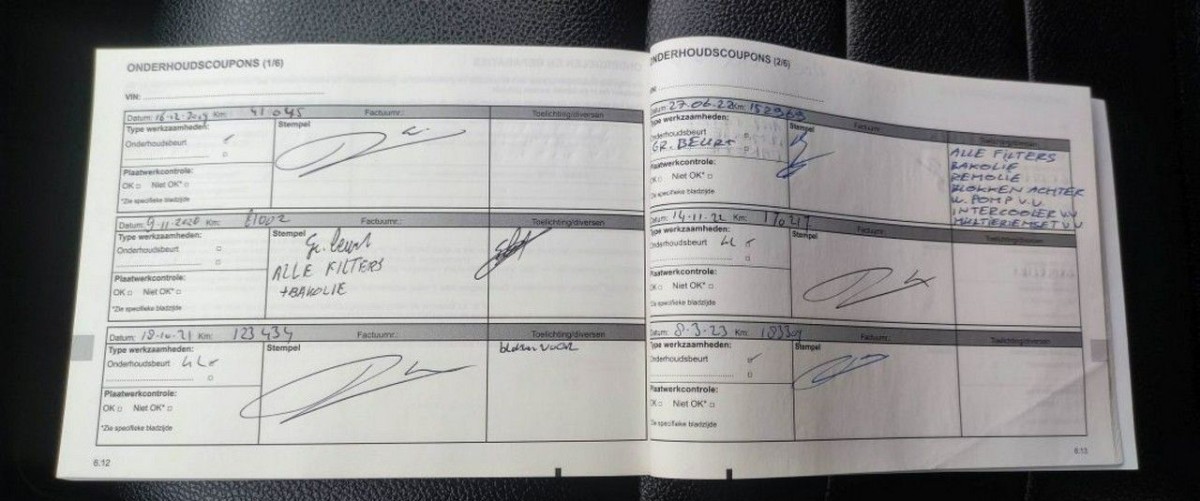 ONDERHOUDSCOUPONS (1/6)
VIN:
Datum: 16-12-2019 Km: 41045 Factuurnr.: Toelichting/diversen
Type werkzaamheden: Stempel
Onderhoudsbeurt
Plaatwerkcontrole:
OK Niet OK*
*Zie specifieke bladzijde
Datum: 9-11-2020 Km: Factuurnr.: Toelichting/diversen
Type werkzaamheden: Stempel
Onderhoudsbeurt
Gr. beurt
ALLE FILTERS
+BAKOLIE
Plaatwerkcontrole:
OK Niet OK*
*Zie specifieke bladzijde
Datum: 18-10-21 Km: 123434 Factuurnr.: Toelichting/diversen
Type werkzaamheden: Stempel
Onderhoudsbeurt
Plaatwerkcontrole:
OK Niet OK*
*Zie specifieke bladzijde
6.12
ONDERHOUDSCOUPONS (2/6)
Datum: 27.06.22 Km: 152969 Factuurnr.
Type werkzaamheden: Stempel
Onderhoudsbeurt
GR. BEURT
Plaatwerkcontrole:
OK Niet OK*
*Zie specifieke bladzijde
ALLE FILTERS
BAKOLIE
REMOLIE
BLOKKEN ACHTER
W. POMP V.V.
INTERCOOLER V.V
MULTIRIEMSET V V
Datum: 14-11-22 Km: Factuurnr.: Toelichting/diversen
Type werkzaamheden: Stempel
Onderhoudsbeurt
Plaatwerkcontrole:
OK Niet OK*
*Zie specifieke bladzijde
Datum: 8-3-23 Km: Factuurnr.: Toelichting/diversen
Type werkzaamheden: Stempel
Onderhoudsbeurt
Plaatwerkcontrole:
OK Niet OK*
*Zie specifieke bladzijde
6.13